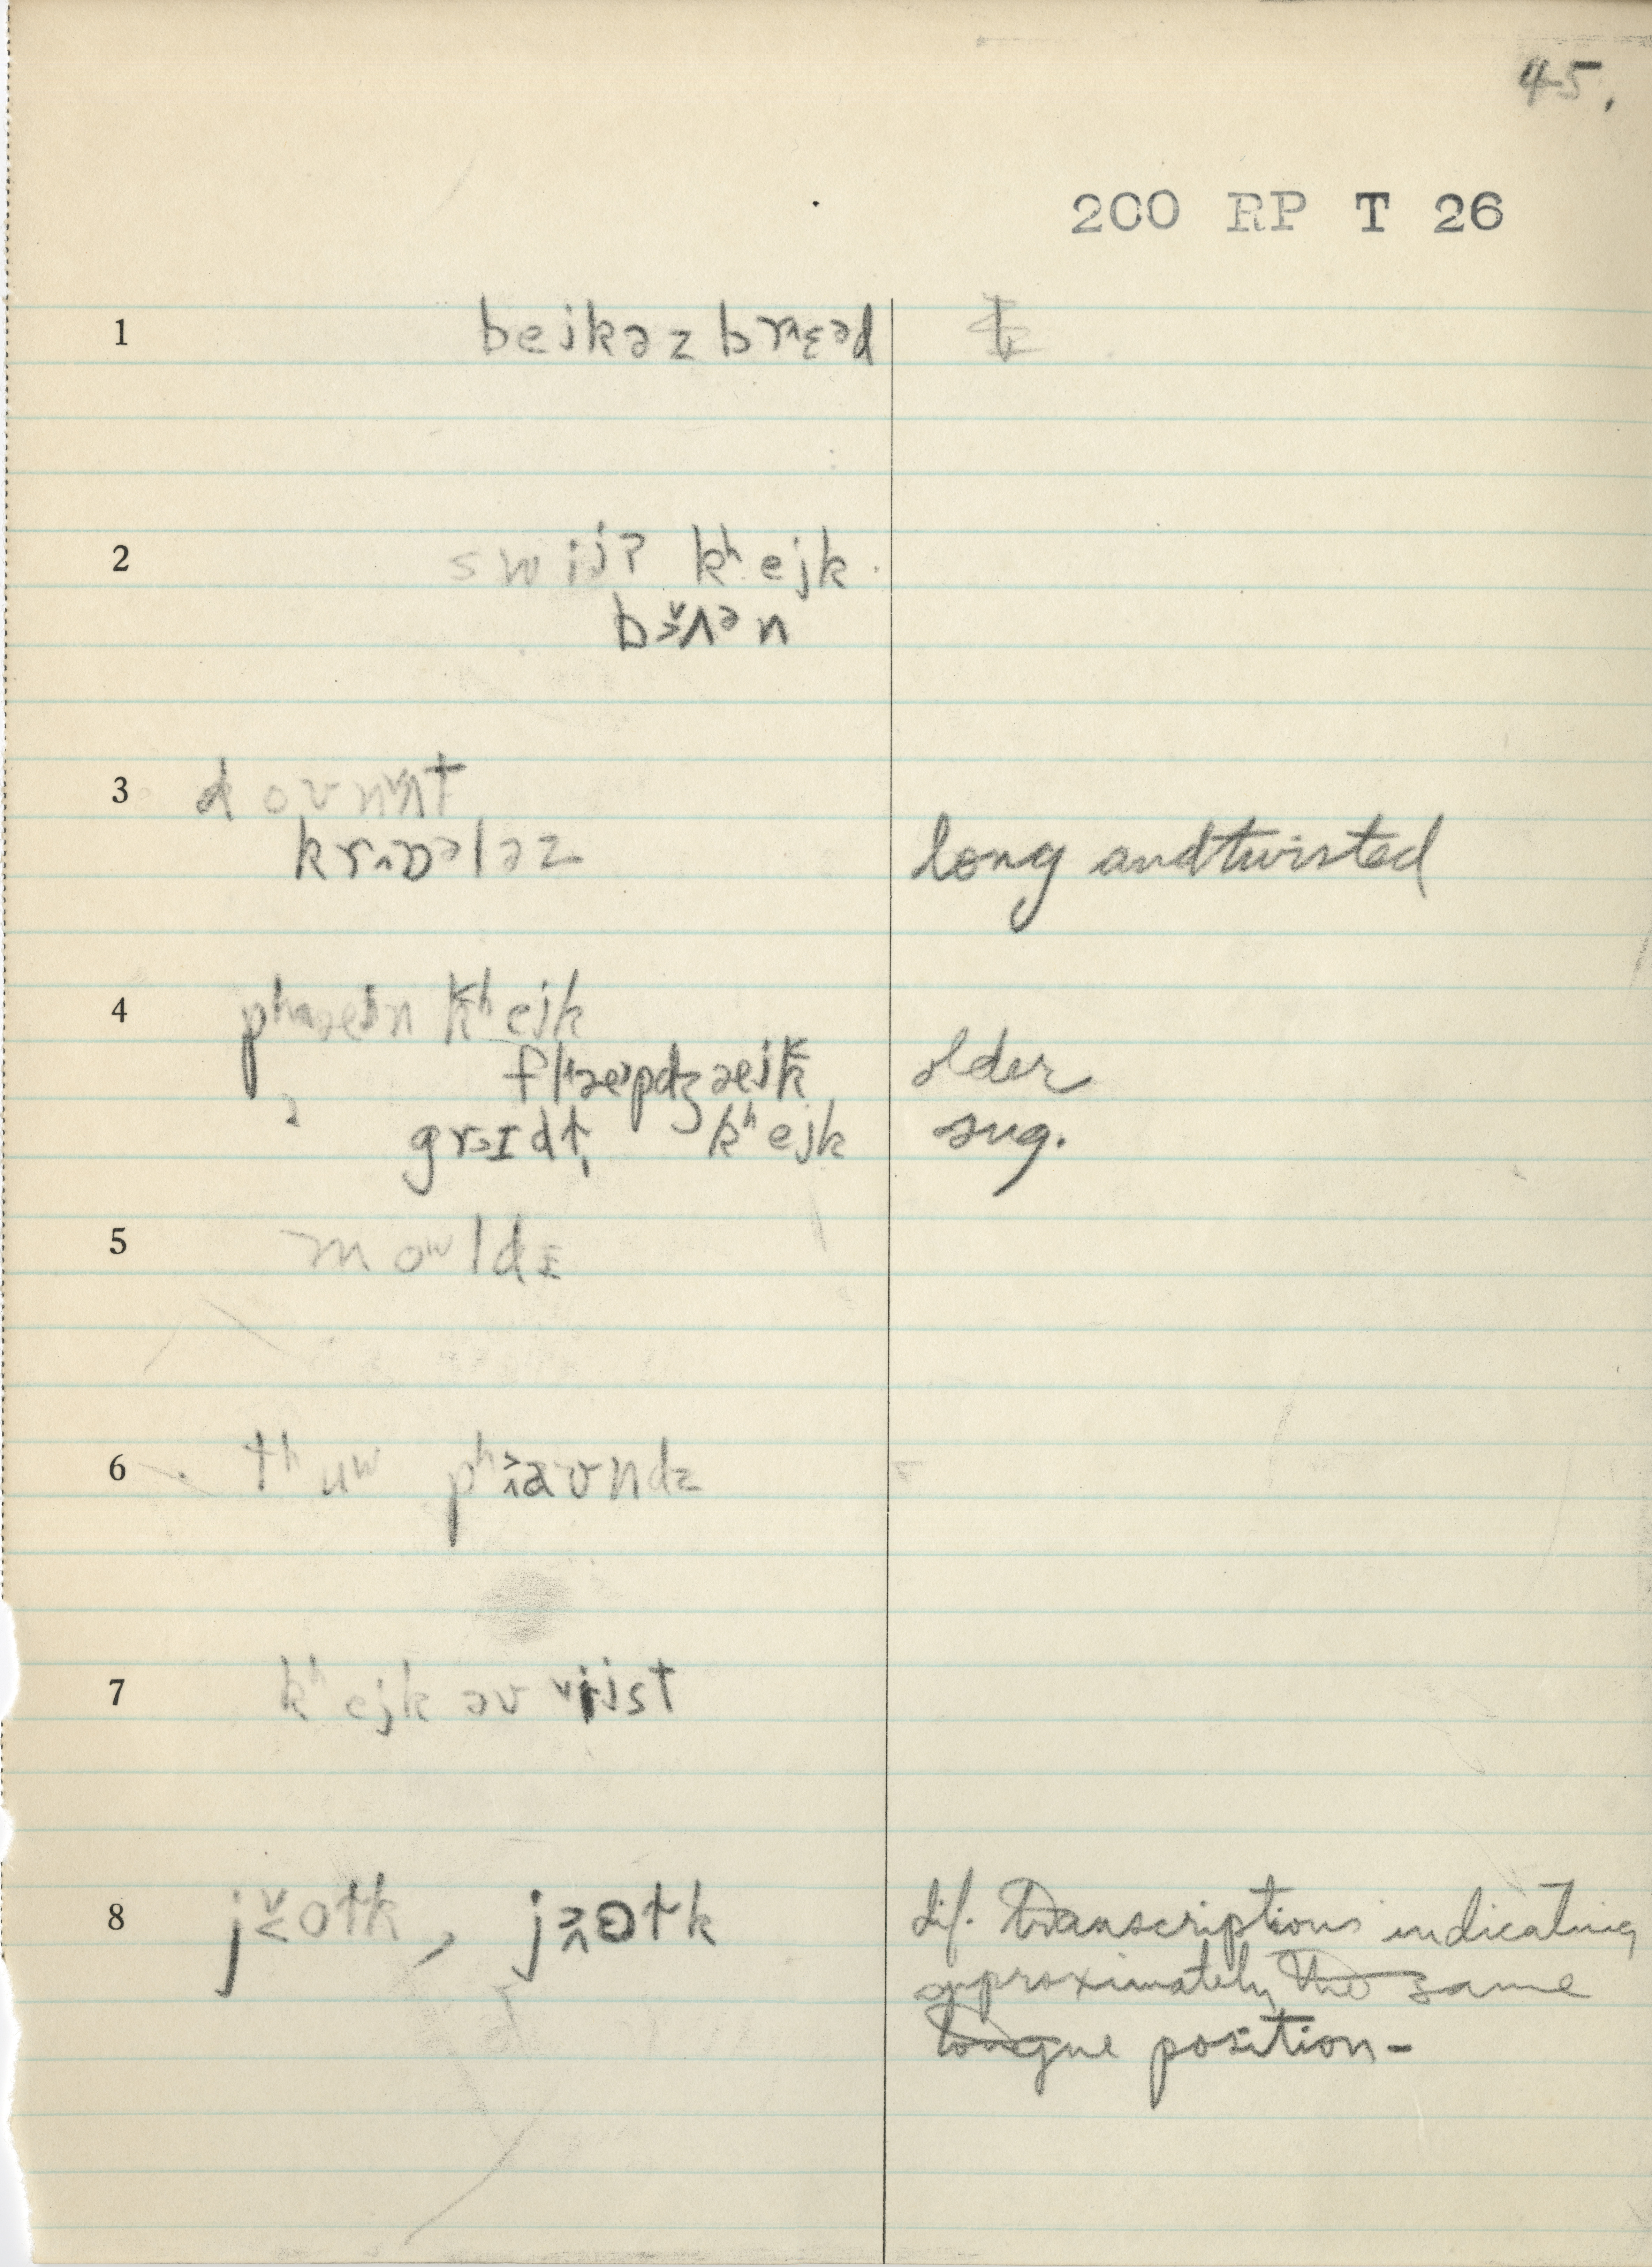 45.
200 RP T 26
1 bejkəz brɛᵊd
2 swijʔ kʰejk
bʌᵊn
3
krɒᵊləz long and twisted
4 kʰejk
older
kʰejk sug.
5 moʷldz
6 tʰuʷ pʰaʊndz
7 kʰejk əv jijst
8 jotk, jɵtk dif. transcriptions indicating
approximately the same
tongue position -